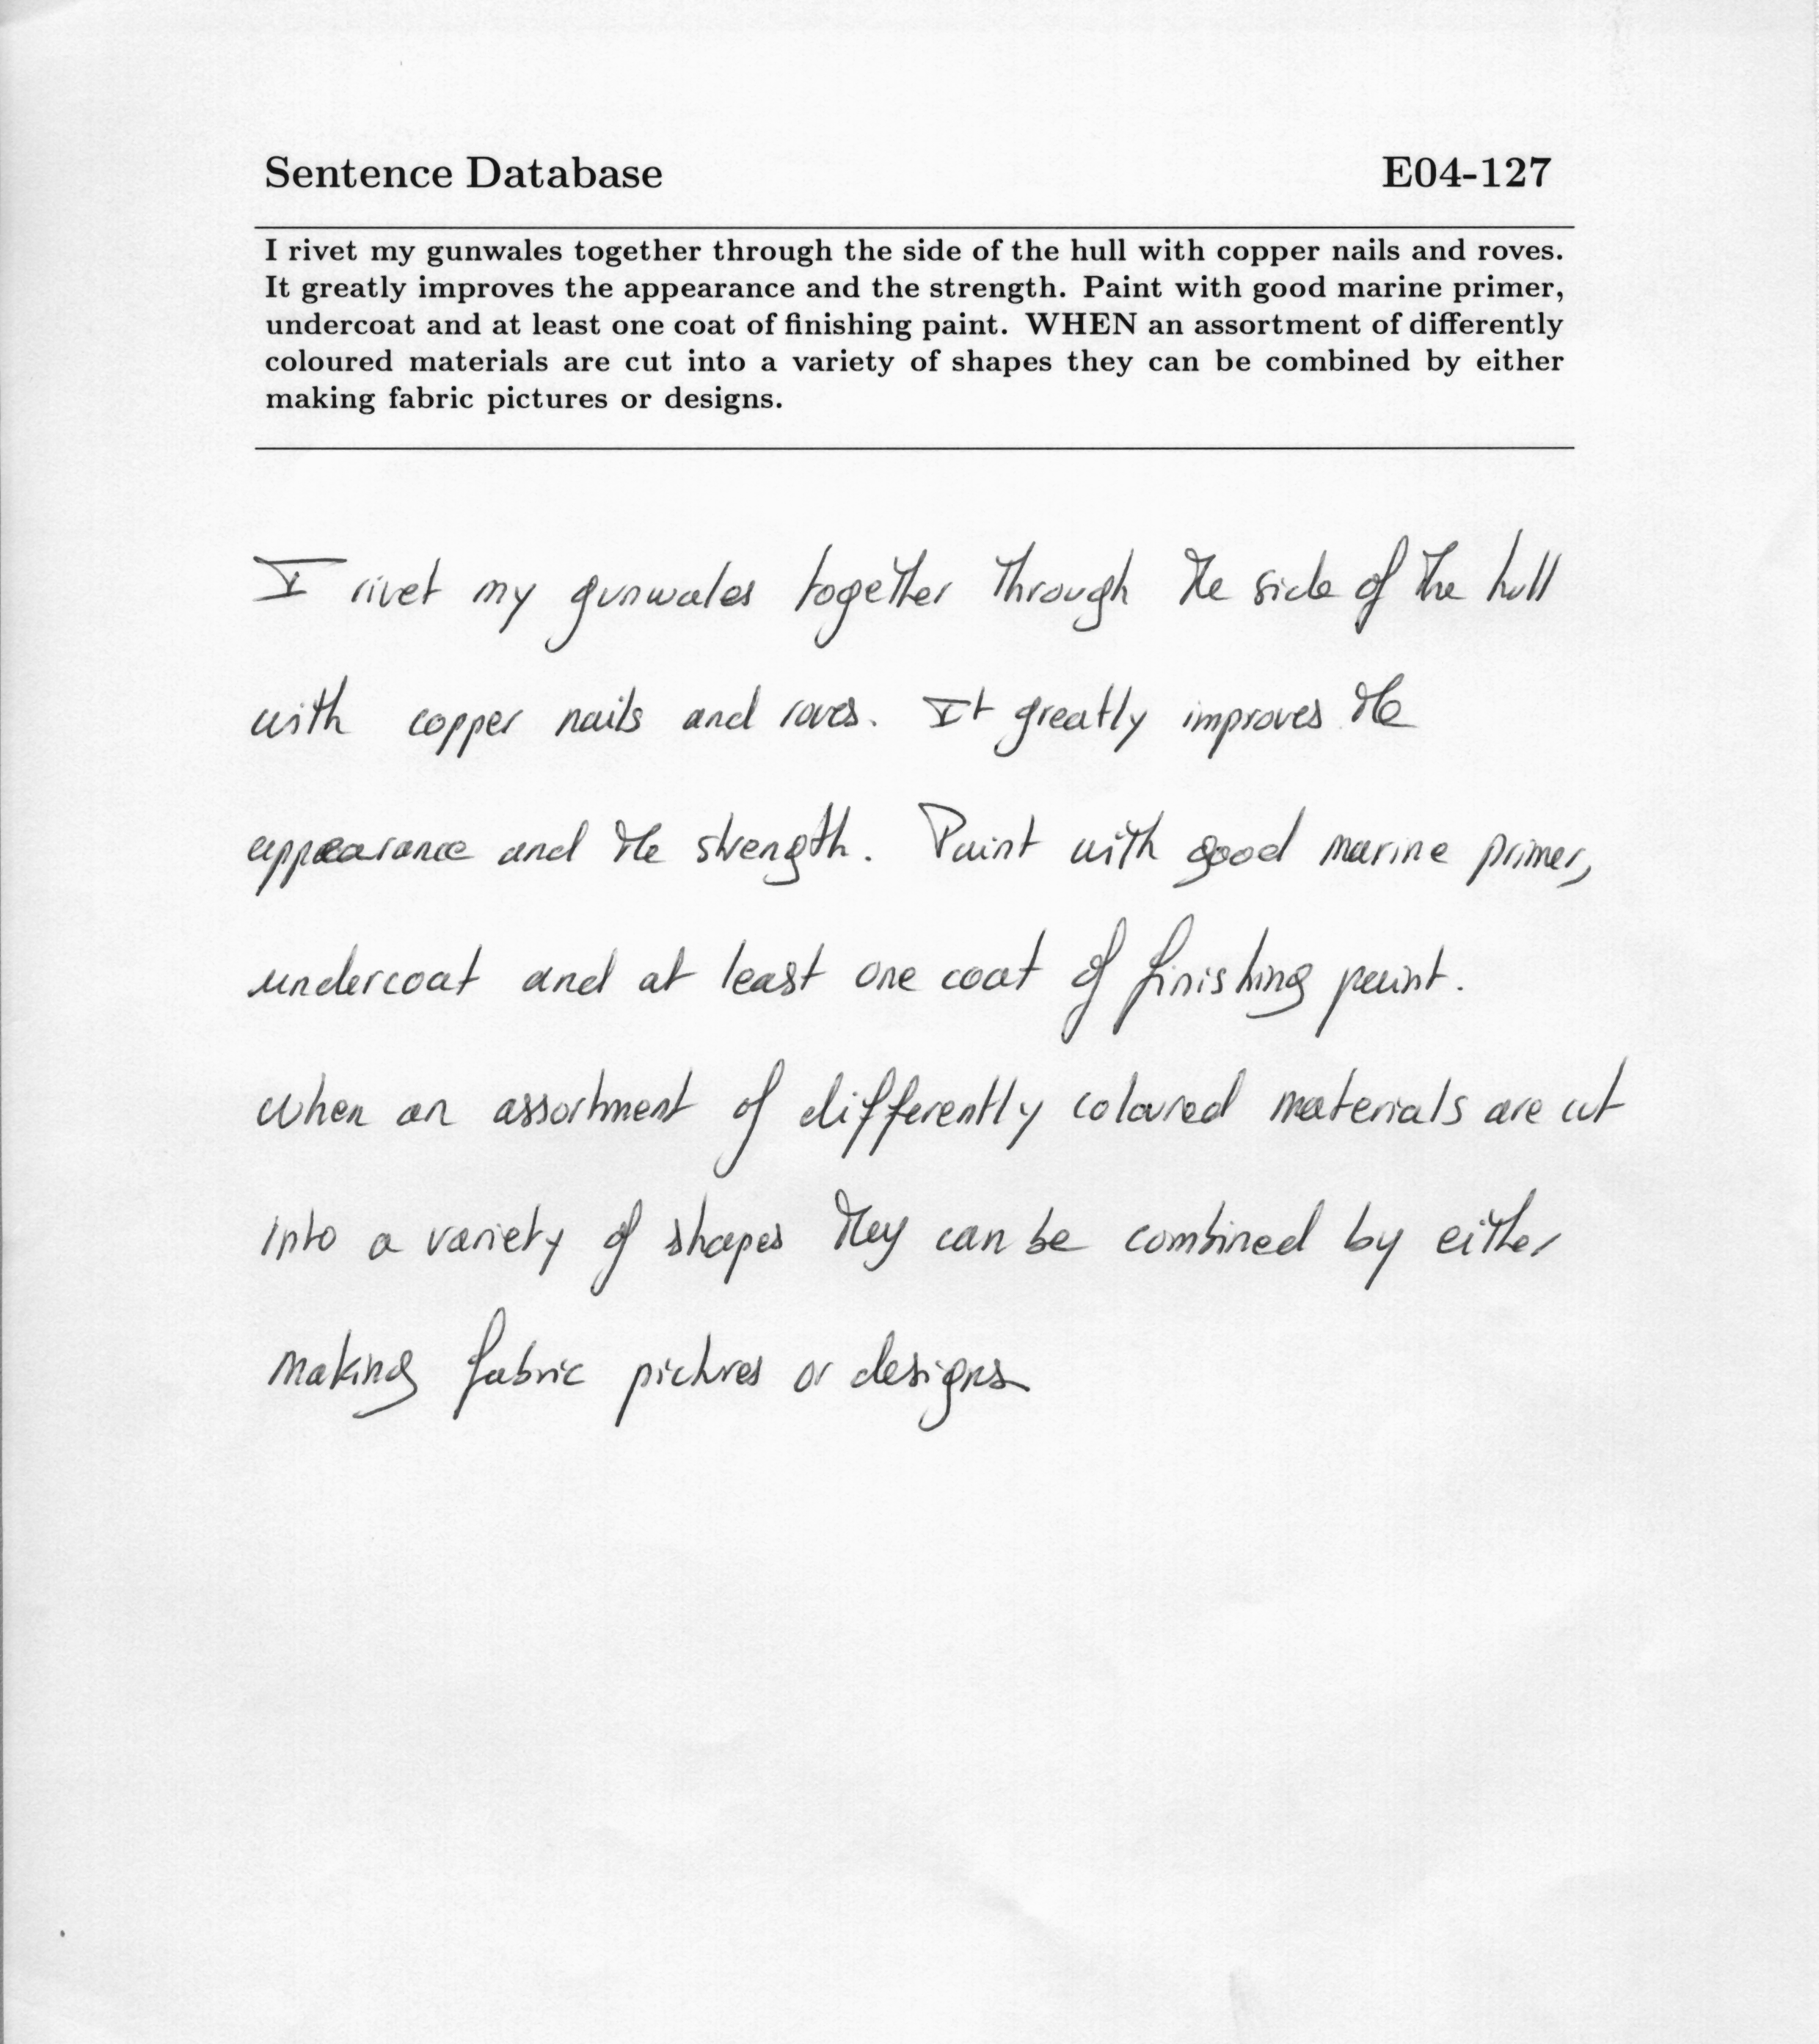 Sentence Database E04-127
I rivet my gunwales together through the side of the hull with copper nails and roves.
It greatly improves the appearance and the strength. Paint with good marine primer,
undercoat and at least one coat of finishing paint. WHEN an assortment of differently
coloured materials are cut into a variety of shapes they can be combined by either
making fabric pictures or designs.
I rivet my gunwales together through the side of the hull
with copper nails and roves. It greatly improves the
appearance and the strength. Paint with good marine primer,
undercoat and at least one coat of finishing paint.
when an assortment of differently coloured materials are cut
into a variety of shapes they can be combined by either
making fabric pictures or designs